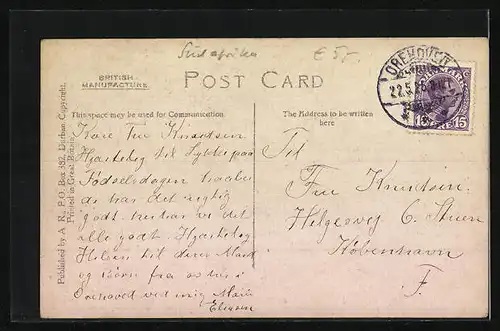 Süd afrika
€ 5,-
BRITISH
MANUFACTURE
POST CARD
OREHOVED
22.5.
DANMARK
15 15
This space may be used for Communication
The Address to be written
here
Published by A. R., P.O. Box 382, Durban Copyright.
Printed in Great Britain.
Kære Fru Knudsen
Hjærtelig til Lykke paa
Fødselsdagen haaber
de har det rigtig
godt her har vi det
alle godt. Hjærtelig
Hilsen til deres Mand
og Børn fra os her i
Orehoved ved mig Marie
Til
Fru Knudsen.
Helgesvej 6. Stuen
København
F.